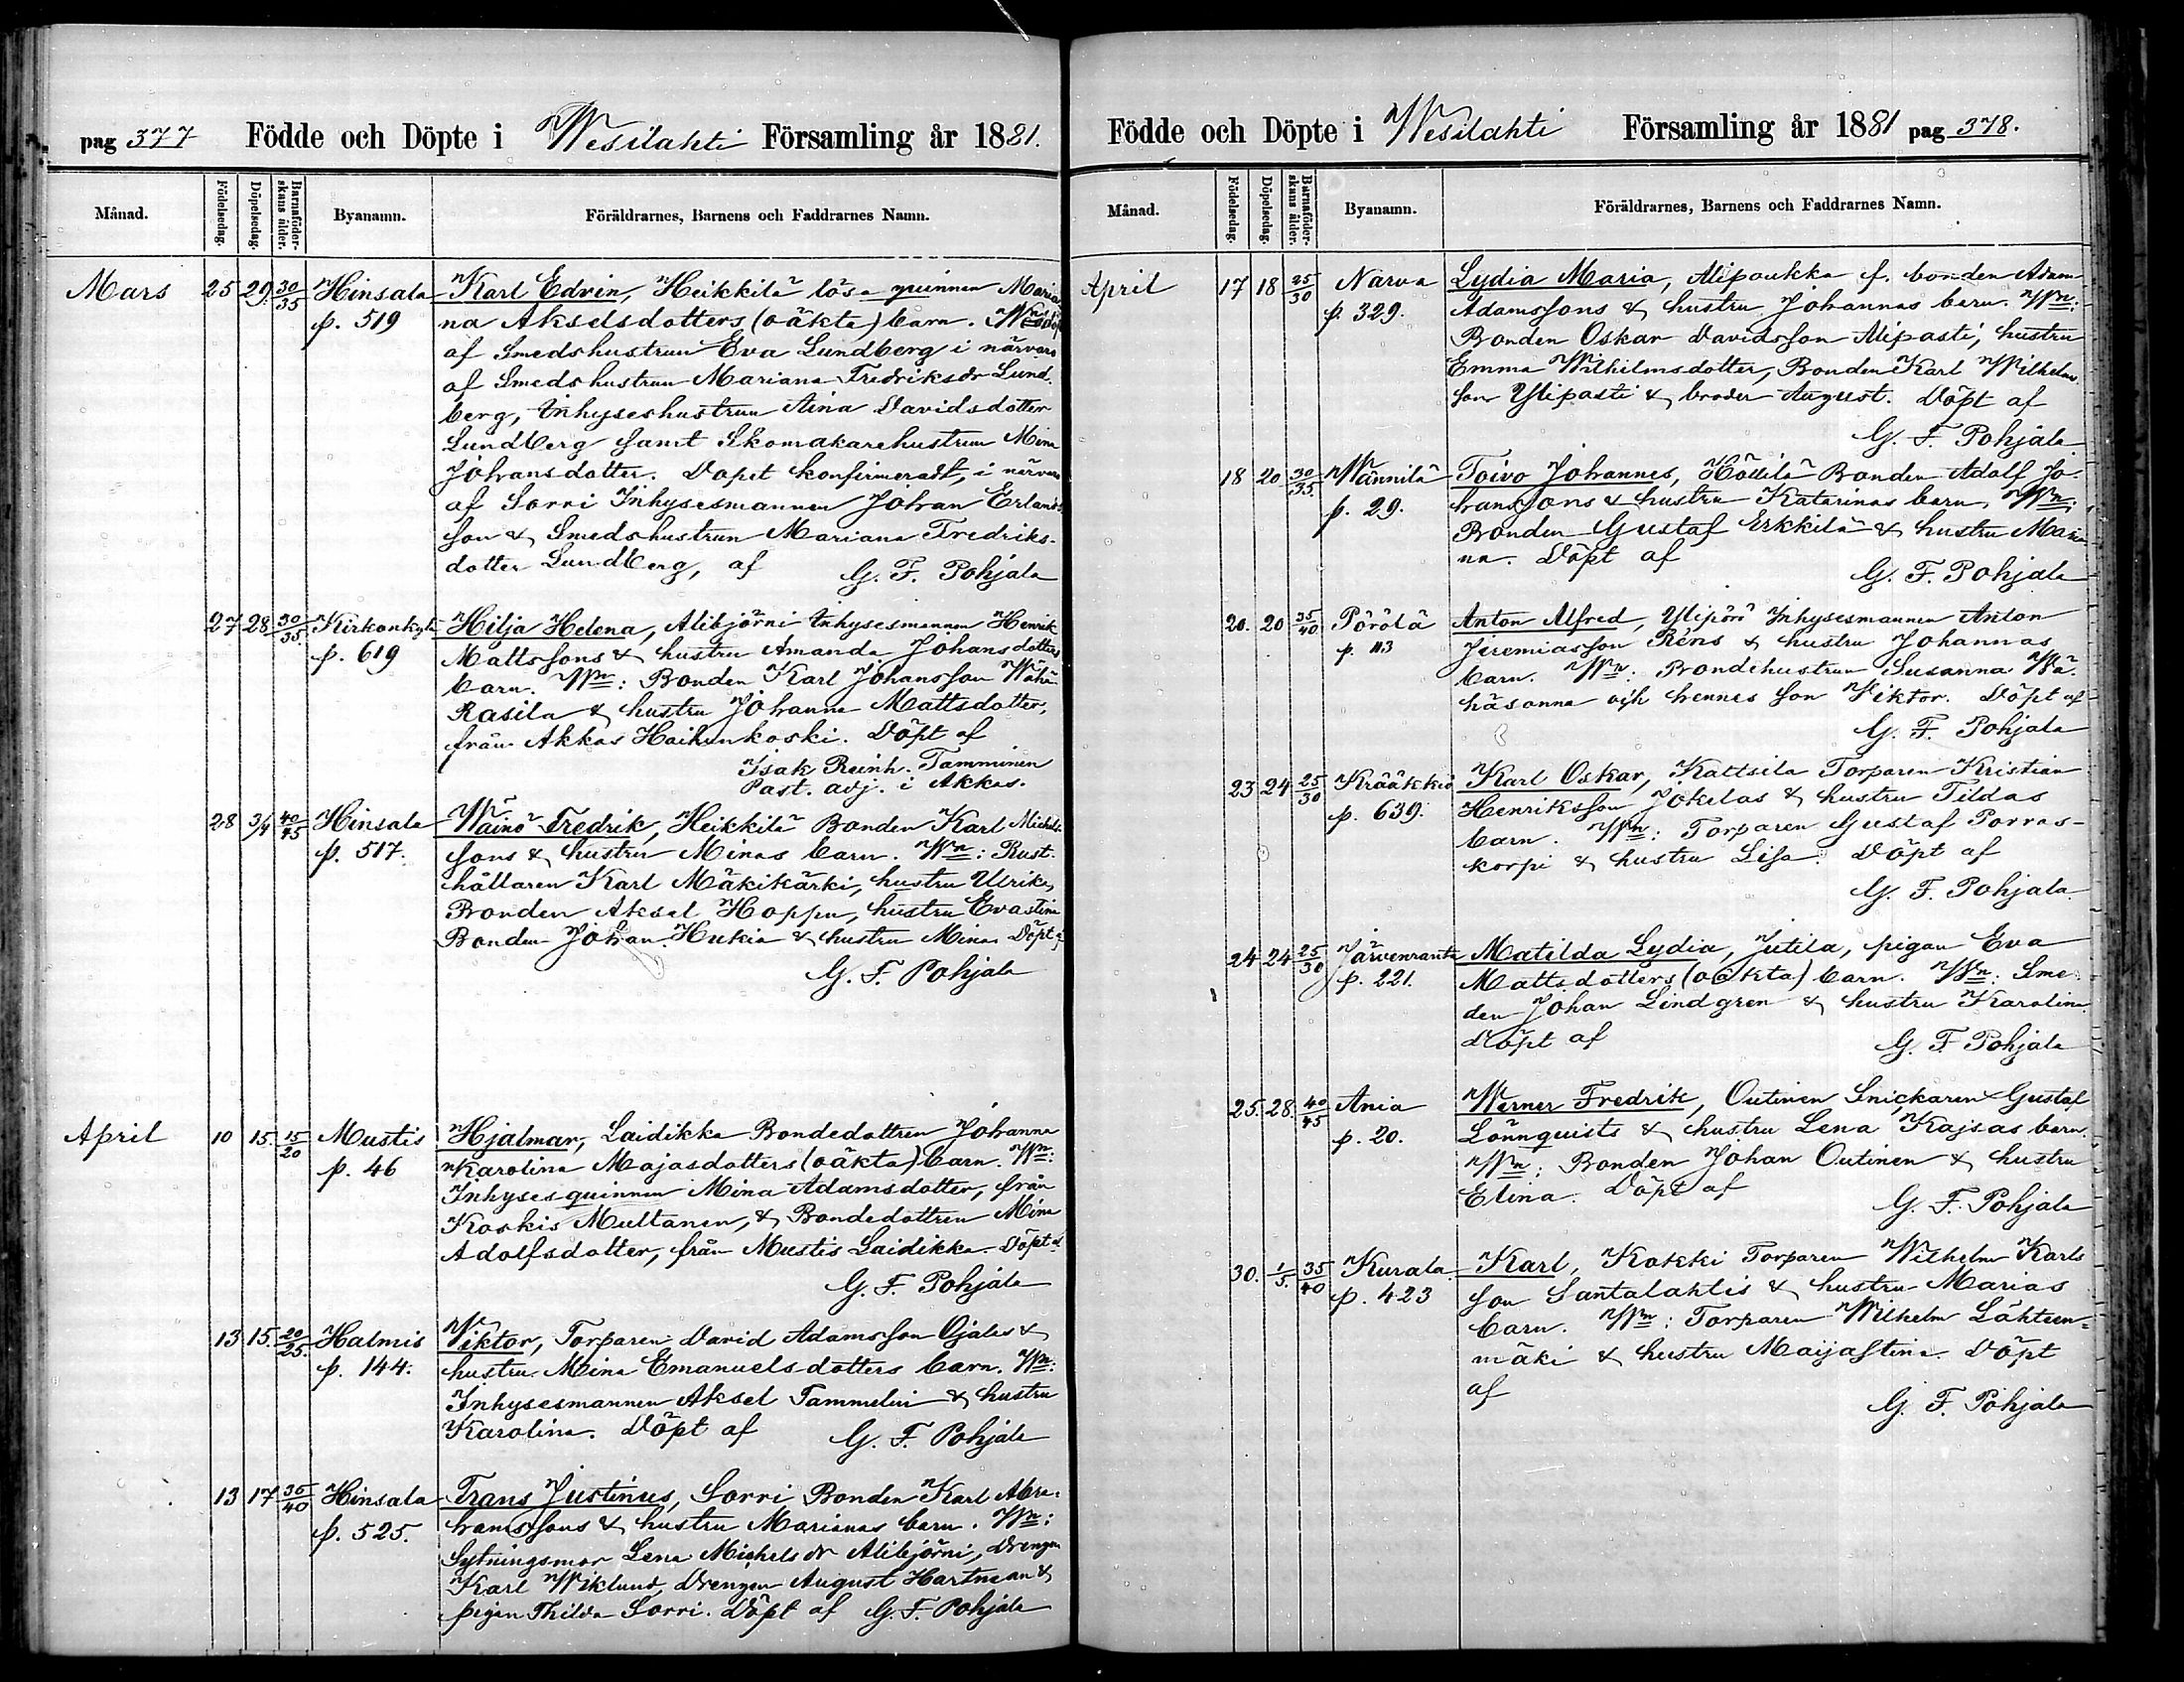 pag 377 Födde och Döpte i Wesilahti Församling år 1881.
Månad. Födelsedag. Döpelsedag. Barnaföderskans ålder. Byanamn. Föräldrarnes, Barnens och Faddrarnes Namn.
Mars 25 29. 30/35 Hinsala Karl Edvin, Heikkilä lösa quinnan Maria
p. 519 na Akselsdotters (oäkta) barn.
af Smedshustrun Eva Lundberg i närvaro
af Smedshustrun Mariana Fredriksdr Lund
berg, Inhyseshustrun Aina Davidsdotter
Lundberg samt Skomakarehustrun Mina
Johansdotter. Dopet konfirmeradt, i närvaro
af Sorri Inhysesmannen Johan Erlands
son & Smedshustrun Mariana Fredriks-
dotter Lundberg, af G. F. Pohjala
27 28 30/35. Kirkonkylä Hilja Helena, Alibjörni Inhysesmannen Henrik
p. 619 Mattssons & hustru Amanda Johansdotters
barn. Wn: Bonden Karl Johansson Wähä
Rasila & hustru Johanna Mattsdotter,
från Akkas Haihunkoski. Döpt af
Isak Reinh. Tamminen
Past. adj. i Akkas.
28 3/4 40/45 Hinsala Wäinö Fredrik, Heikkilä Bonden Karl Michels
p. 517. sons & hustru Minas barn. Wn: Rust.
hållaren Karl Mäkikärki, hustru Ulrika,
Bonden Aksel Hoppu, hustru Evastina
Bonden Johan Hukia & hustru Mina. Döpt af
G. F. Pohjala
April 10 15. 15/20 Mustis Hjalmar, Laidikka Bondedottren Johanna
p. 46 Karolina Majasdotters (oäkta) barn. Wn:
Inhysesquinnan Mina Adamsdotter, från
Koskis Multanen, & Bondedottren Mina
Adolfsdotter, från Mustis Laidikka. Döpt af
G. F. Pohjala
13 15. 20/25. Halmis Viktor, Torparen David Adamsson Ojalas &
p. 144. hustru Mina Emanuelsdotters barn. Wn:
Inhysesmannen Aksel Tammelin & hustru
Karolina. Döpt af G. F. Pohjala
13 17 35/40 Hinsala Frans Justinus, Sorri Bonden Karl Abra-
p. 525. hamssons & hustru Marianas barn. Wn:
Sytningsmor Lena Michelsdr Alibjörni, Drengen
Karl Wiklund, Drengen August Hartman &
pigan Thilda Sorri. Döpt af G. F. Pohjala
Födde och Döpte i Wesilahti Församling år 1881 pag 378.
Månad. Födelsedag. Döpelsedag. Barnaföderskans ålder. Byanamn. Föräldrarnes, Barnens och Faddrarnes Namn.
April 17 18 25/30 Narva Lydia Maria, Alipoukka f. bonden Adam
p. 329. Adamssons & hustru Johannas barn. Wn:
Bonden Oskar Davidsson Alipasti, hustru
Emma Wilhelmsdotter, Bonden Karl Wilhelms
son Ylipasti & broder August. Döpt af
G. F. Pohjala
18 20 30/35. Wännilä Toivo Johannes, Höttilä Bonden Adolf Jo-
p. 29. hanssons & hustru Katarinas barn. Wn:
Bonden Gustaf Erkkilä & hustru Maria
na. Döpt af
G. F. Pohjala
20. 20 35/40 Pörölä Anton Alfred, Ylipörö Inhysesmannen Anton
p. 113 Jeremiasson Réns & hustru Johannas
barn. Wn: Bondehustrun Susanna Wä-
häsanna och hennes son Viktor. Döpt af
G. F. Pohjala
23 24 25/30 Krääkkiö Karl Oskar, Kaltsila Torparen Kristian
p. 639. Henriksson Jokelas & hustru Tildas
barn. Wn: Torparen Gustaf Porras-
korpi & hustru Lisa. Döpt af
G. F. Pohjala.
24 24 25/30 Järvenranta Matilda Lydia, Jutila, pigan Eva
p. 221. Mattsdotters (oäkta) barn. Wn: Sme-
den Johan Lindgren & hustru Karolina.
Döpt af G. F. Pohjala
25. 28. 40/45 Ania Werner Fredrik, Outinen Snickaren Gustaf
p. 20. Lönnquists & hustru Lena Kajsas barn.
Wn: Bonden Johan Outinen & hustru
Elina. Döpt af G. F. Pohjala
30. 1/5. 35/40 Kurala Karl, Kokki Torparen Wilhelm Karls
p. 423 son Santalahtis & hustru Marias
barn. Wn: Torparen Wilhelm Lähteen-
mäki & hustru Maijastina. Döpt
af G. F. Pohjala